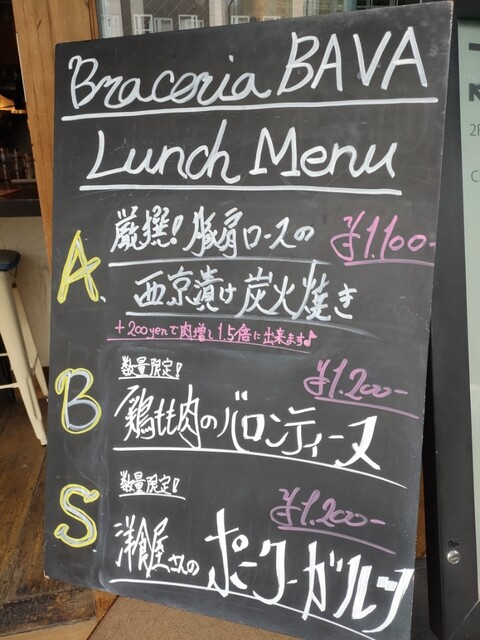 Braceria BAVA
Lunch Menu
A. 厳撰!豚肩ロースの ¥1.100-
西京漬け炭火焼き
+200yenで肉増し1.5倍に出来ます♪
数量限定!!
B 鶏もも肉のバロンティーヌ ¥1.200-
数量限定!!
S. 洋食屋さんのポークーガルリ ¥1.200-